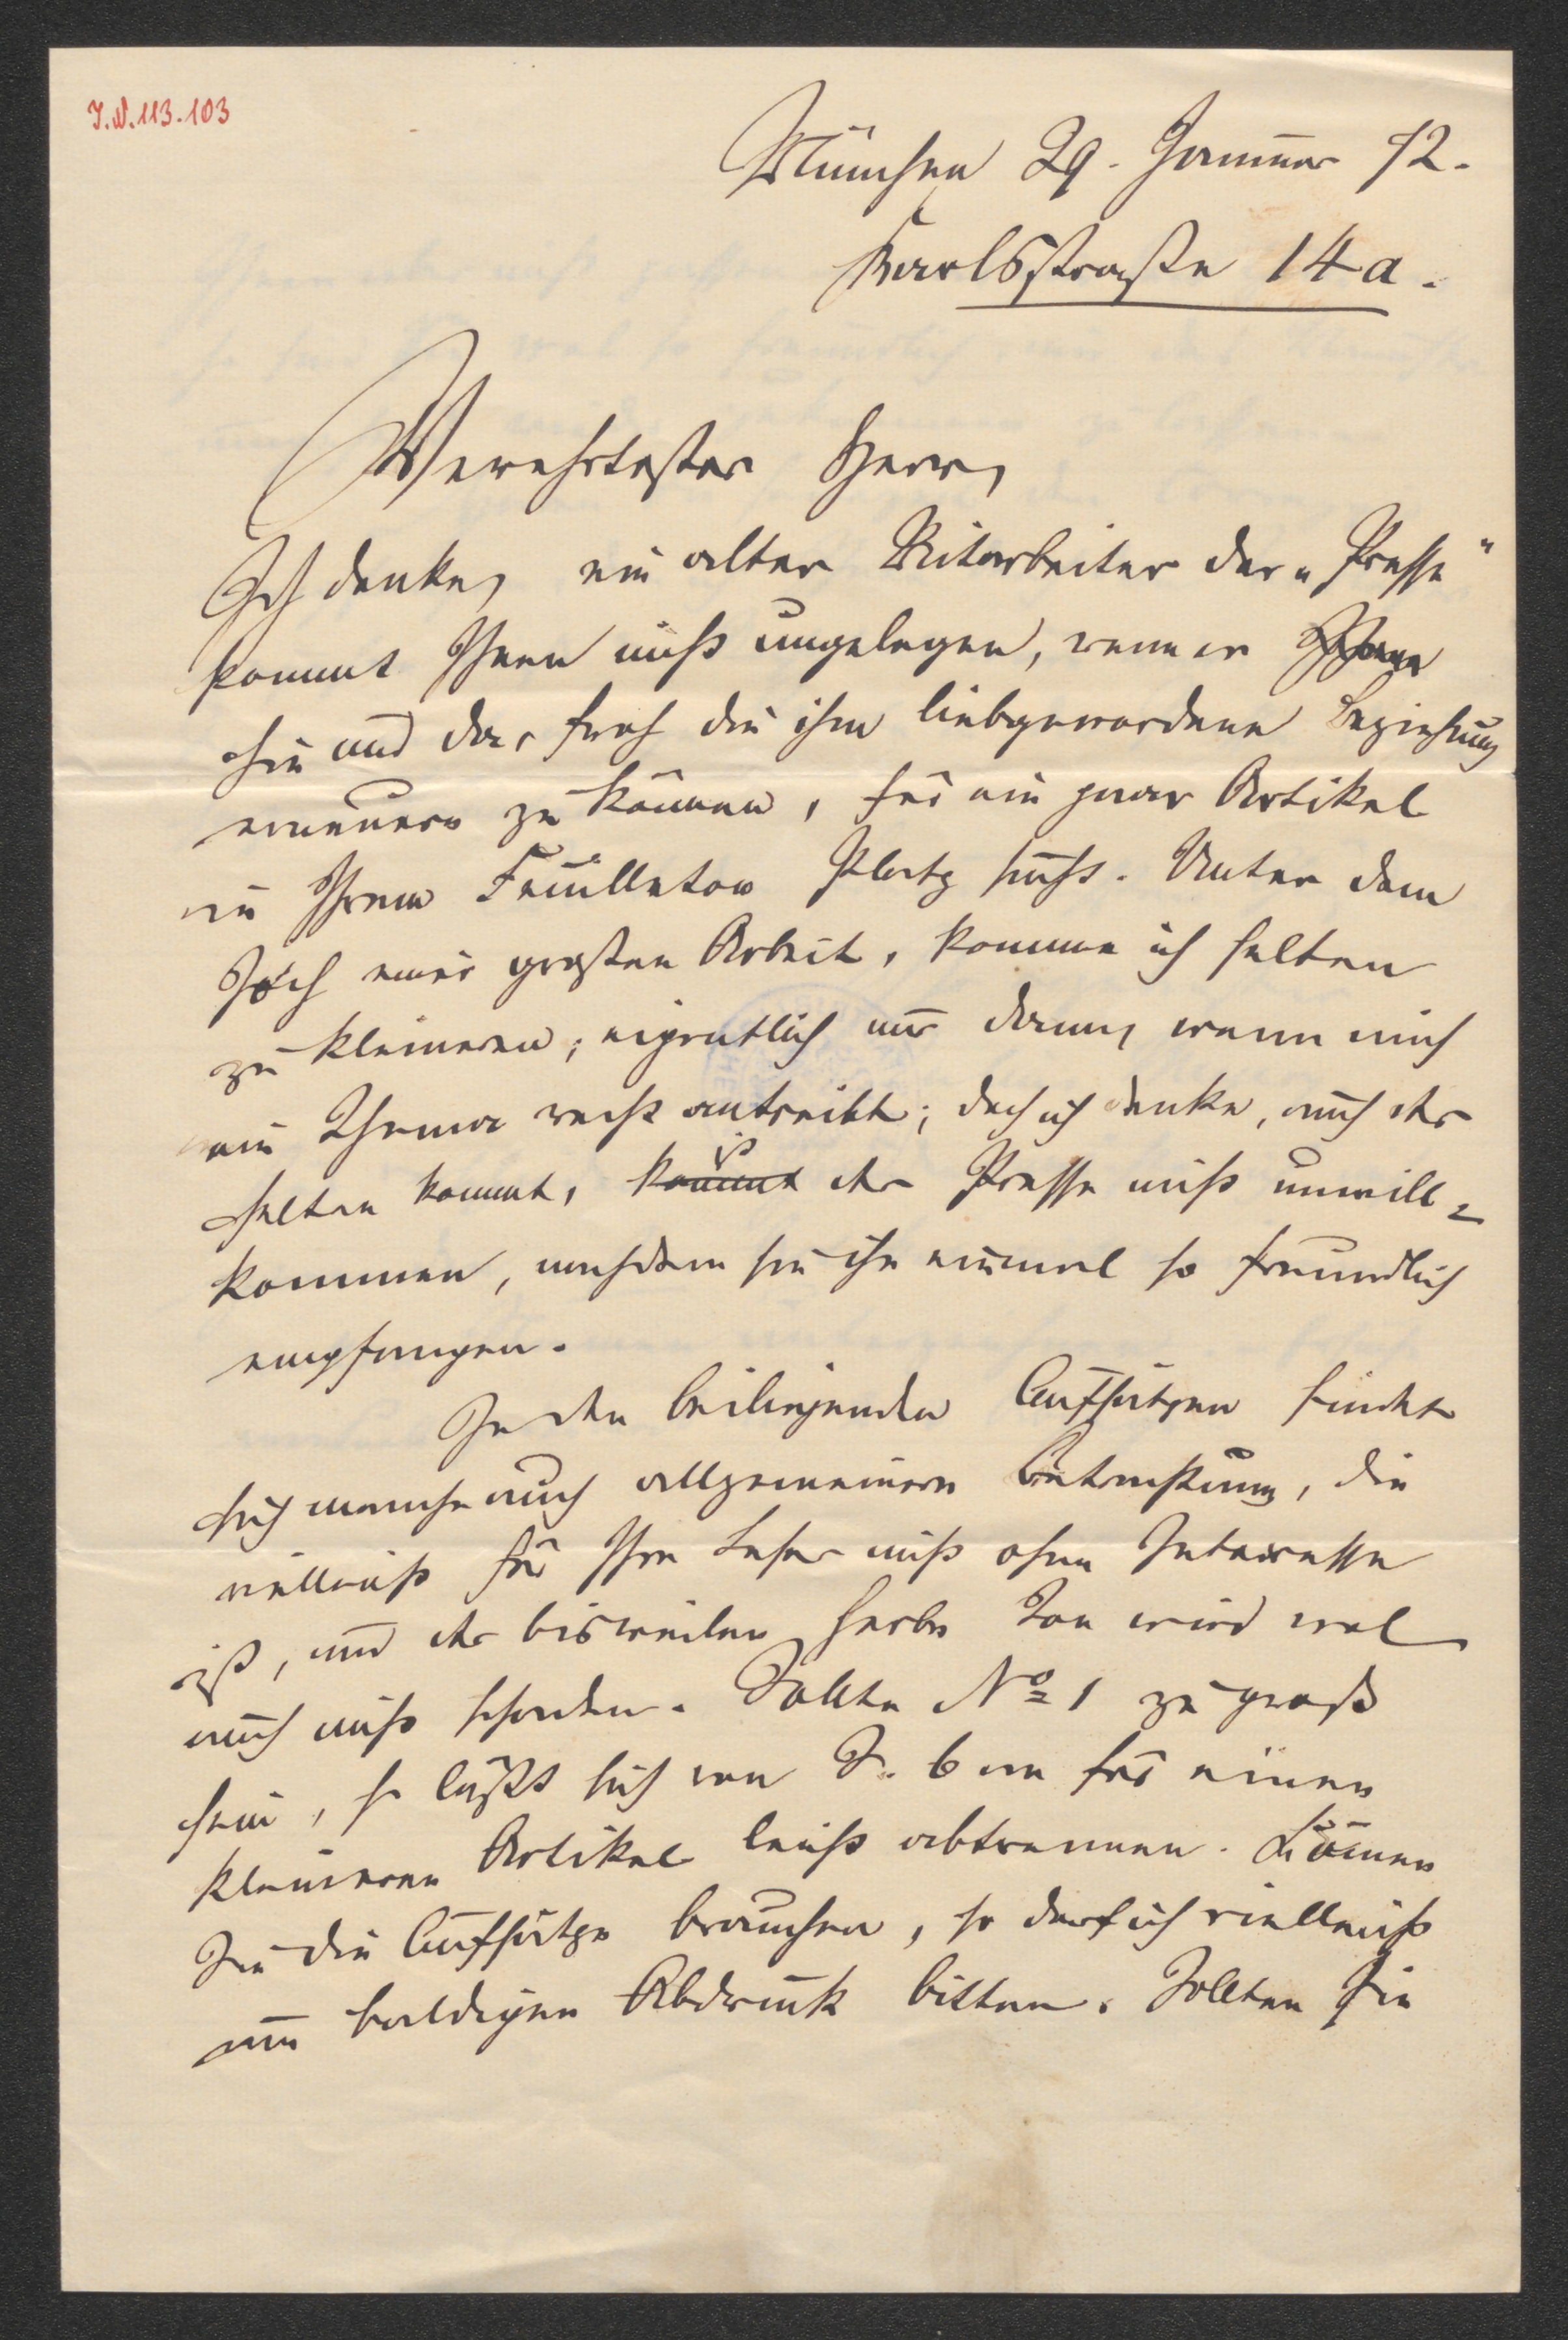 I.N. 113.103
München 29. Januar 72.
Karlsstraße 14 a.
Verehrtester Herr,
Ich denke, ein alter Mitarbeiter der „Presse"
kommt Ihnen nicht ungelegen, wenn er
hie und da, froh die ihm liebgewordene Beziehung
erneuern zu können, für ein paar Artikel
in Ihrem Feuilleton Platz sucht. Unter dem
Joch einer großen Arbeit, komme ich selten
zu kleineren; eigentlich nur dann, wenn mich
ein Thema recht antreibt; doch ich denke, auch der
selten kommt, kommt ist der Presse nicht unwill-
kommen, nachdem sie ihn einmal so freundlich
empfangen.
In den beiliegenden Aufsätzen findet
sich manche auch allgemeinere Betrachtung, die
vielleicht für Ihre Leser nicht ohne Interesse
ist, und der bisweilen herbe Ton wird wol
auch nicht schaden. Sollte No 1 zu groß
sein, so läßt sich von S. 6 an für einen
kleineren Artikel leicht abtrennen. Können
Sie die Aufsätze brauchen, so darf ich vielleicht
um baldigen Abdruck bitten. Sollten Sie